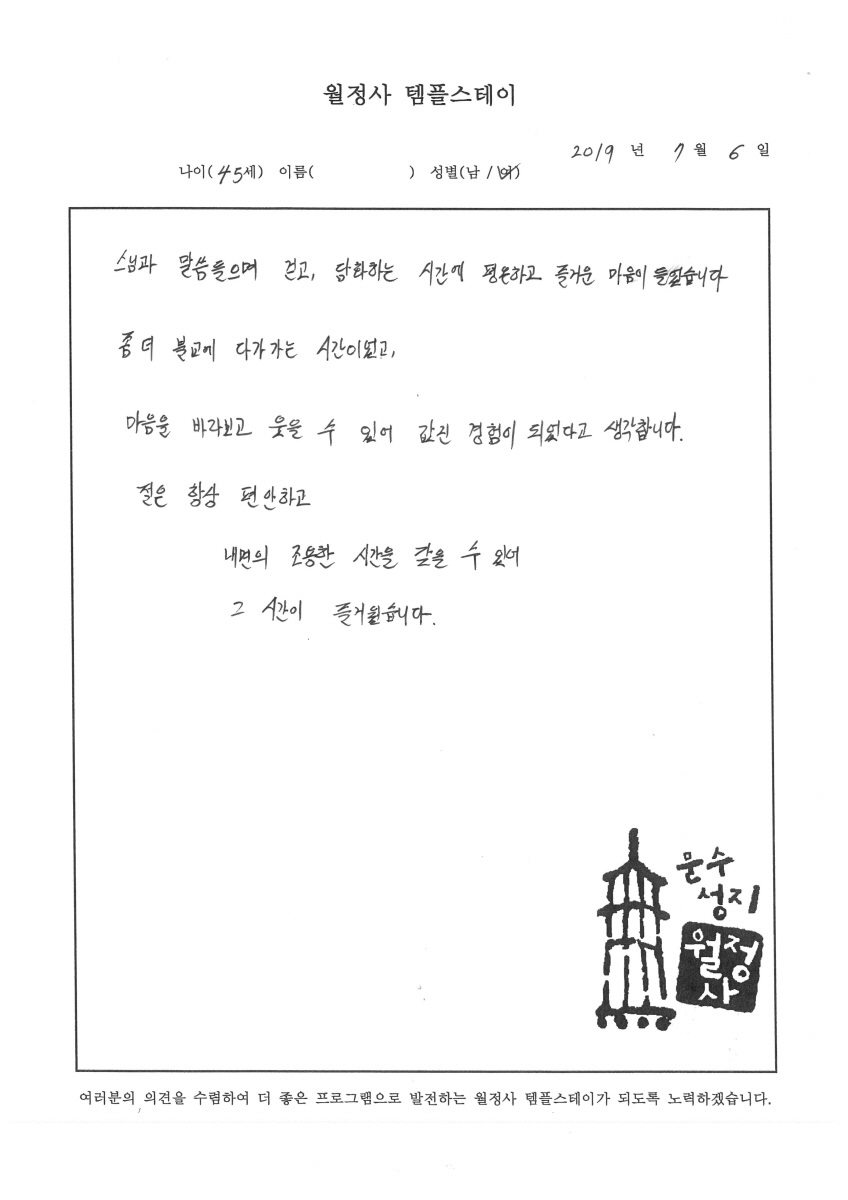 월정사 템플스테이
2019 년 7 월 6 일
나이( 45세) 이름( ) 성별(남 / 여)
스님과 말씀들으며 걷고, 담화하는 시간에 평온하고 즐거운 마음이 들었습니다
좀 더 불교에 다가가는 시간이었고,
마음을 바라보고 웃을 수 있어 값진 경험이 되었다고 생각합니다.
절은 항상 편안하고
내면의 조용한 시간을 갖을 수 있어
그 시간이 즐거웠습니다.
문수
성지
월정
사
여러분의 의견을 수렴하여 더 좋은 프로그램으로 발전하는 월정사 템플스테이가 되도록 노력하겠습니다.